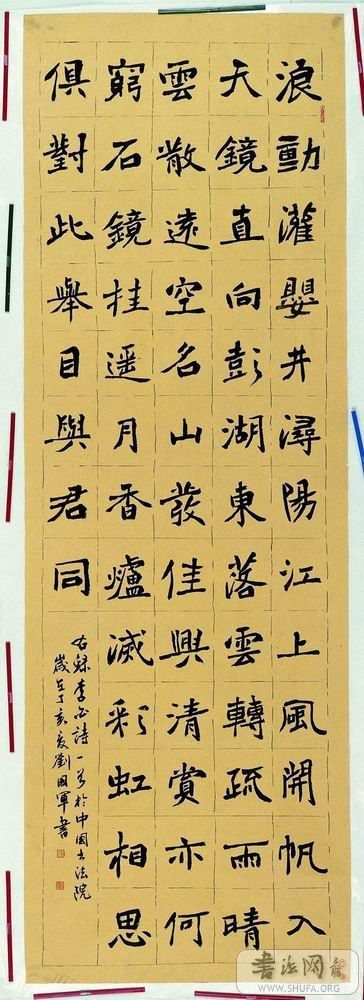 浪動灌嬰井潯陽江上風開帆入
天鏡直向彭湖東落雲轉疏雨晴
雲散遠空名山發佳興清賞亦何
窮石鏡挂遥月香爐滅彩虹相思
俱對此舉目與君同
右録李白詩一首於中國书法院
歲在丁亥夏劉国軍書
書法网
WWW.SHUFA.ORG